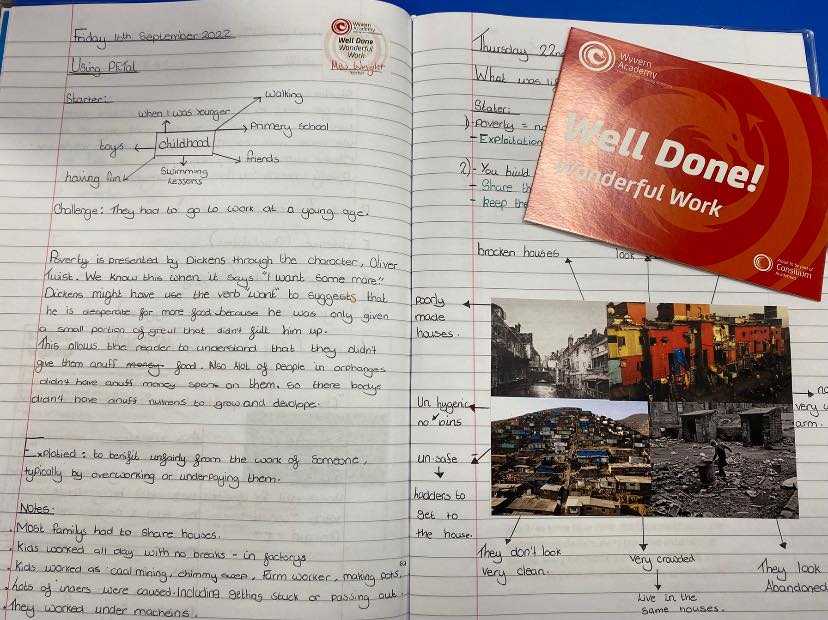 Friday 16th September 2022
Using PETAL
Wyvern Academy
Well Done
Wonderful
Work
Miss Wright
Starter:
when I was younger
walking
toys
childhood
primary school
having fun
Swimming
Lessons
friends
Challenge: They had to go to work at a young age.
Poverty is presented by Dickens through the character, Oliver
Twist. We know this when it says "I want some more"
Dickens might have use the verb "want" to suggests that
he is desperate for more food because he was only given
a small portion of greul that didn't full him up.
This allows the reader to understand that they didn't
give them anuff money food. Also Alot of people in orphanges
didn't have anuff money spent on them. So there bodye
didn't have anuff nutrens to grow and devlope.
Explotied: to benifit unfairly from the work of Someone,
typically by overworking or underpaying them.
Notes:
. Most family had to share houses.
. Kids worked all day with no breaks - in factorys
. Kids worked as: coal mining, chimmy sweep, farm worker, making pots.
were caused. Including getting stuck or passing out.
. They worked under macheins.
Thursday 22n
What was li
Stater:
1) - Poverty = no
- Exploitation
2) - You build
- Share th
- keep the
Wyvern
Academy
Well Done!
Wonderful Work
Proud to be part of
Consilium
brocken houses
look
poorly
made
houses.
Un hygenic
no bins
un safe
hadders to
get to
the house.
They don't look
very clean.
very crowded
Live in the
same houses.
They look
Abandoned
no
very u
arm.